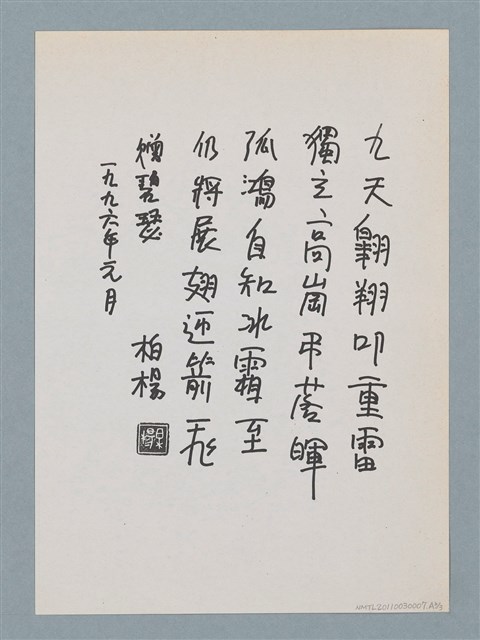 九天翺翔叩重雷
獨立高崗弔蒼暉
孤鴻自知冰霜至
仍將展翅迎箭飛
贈碧瑟
柏楊
一九九六年元月
NMTL20110030007